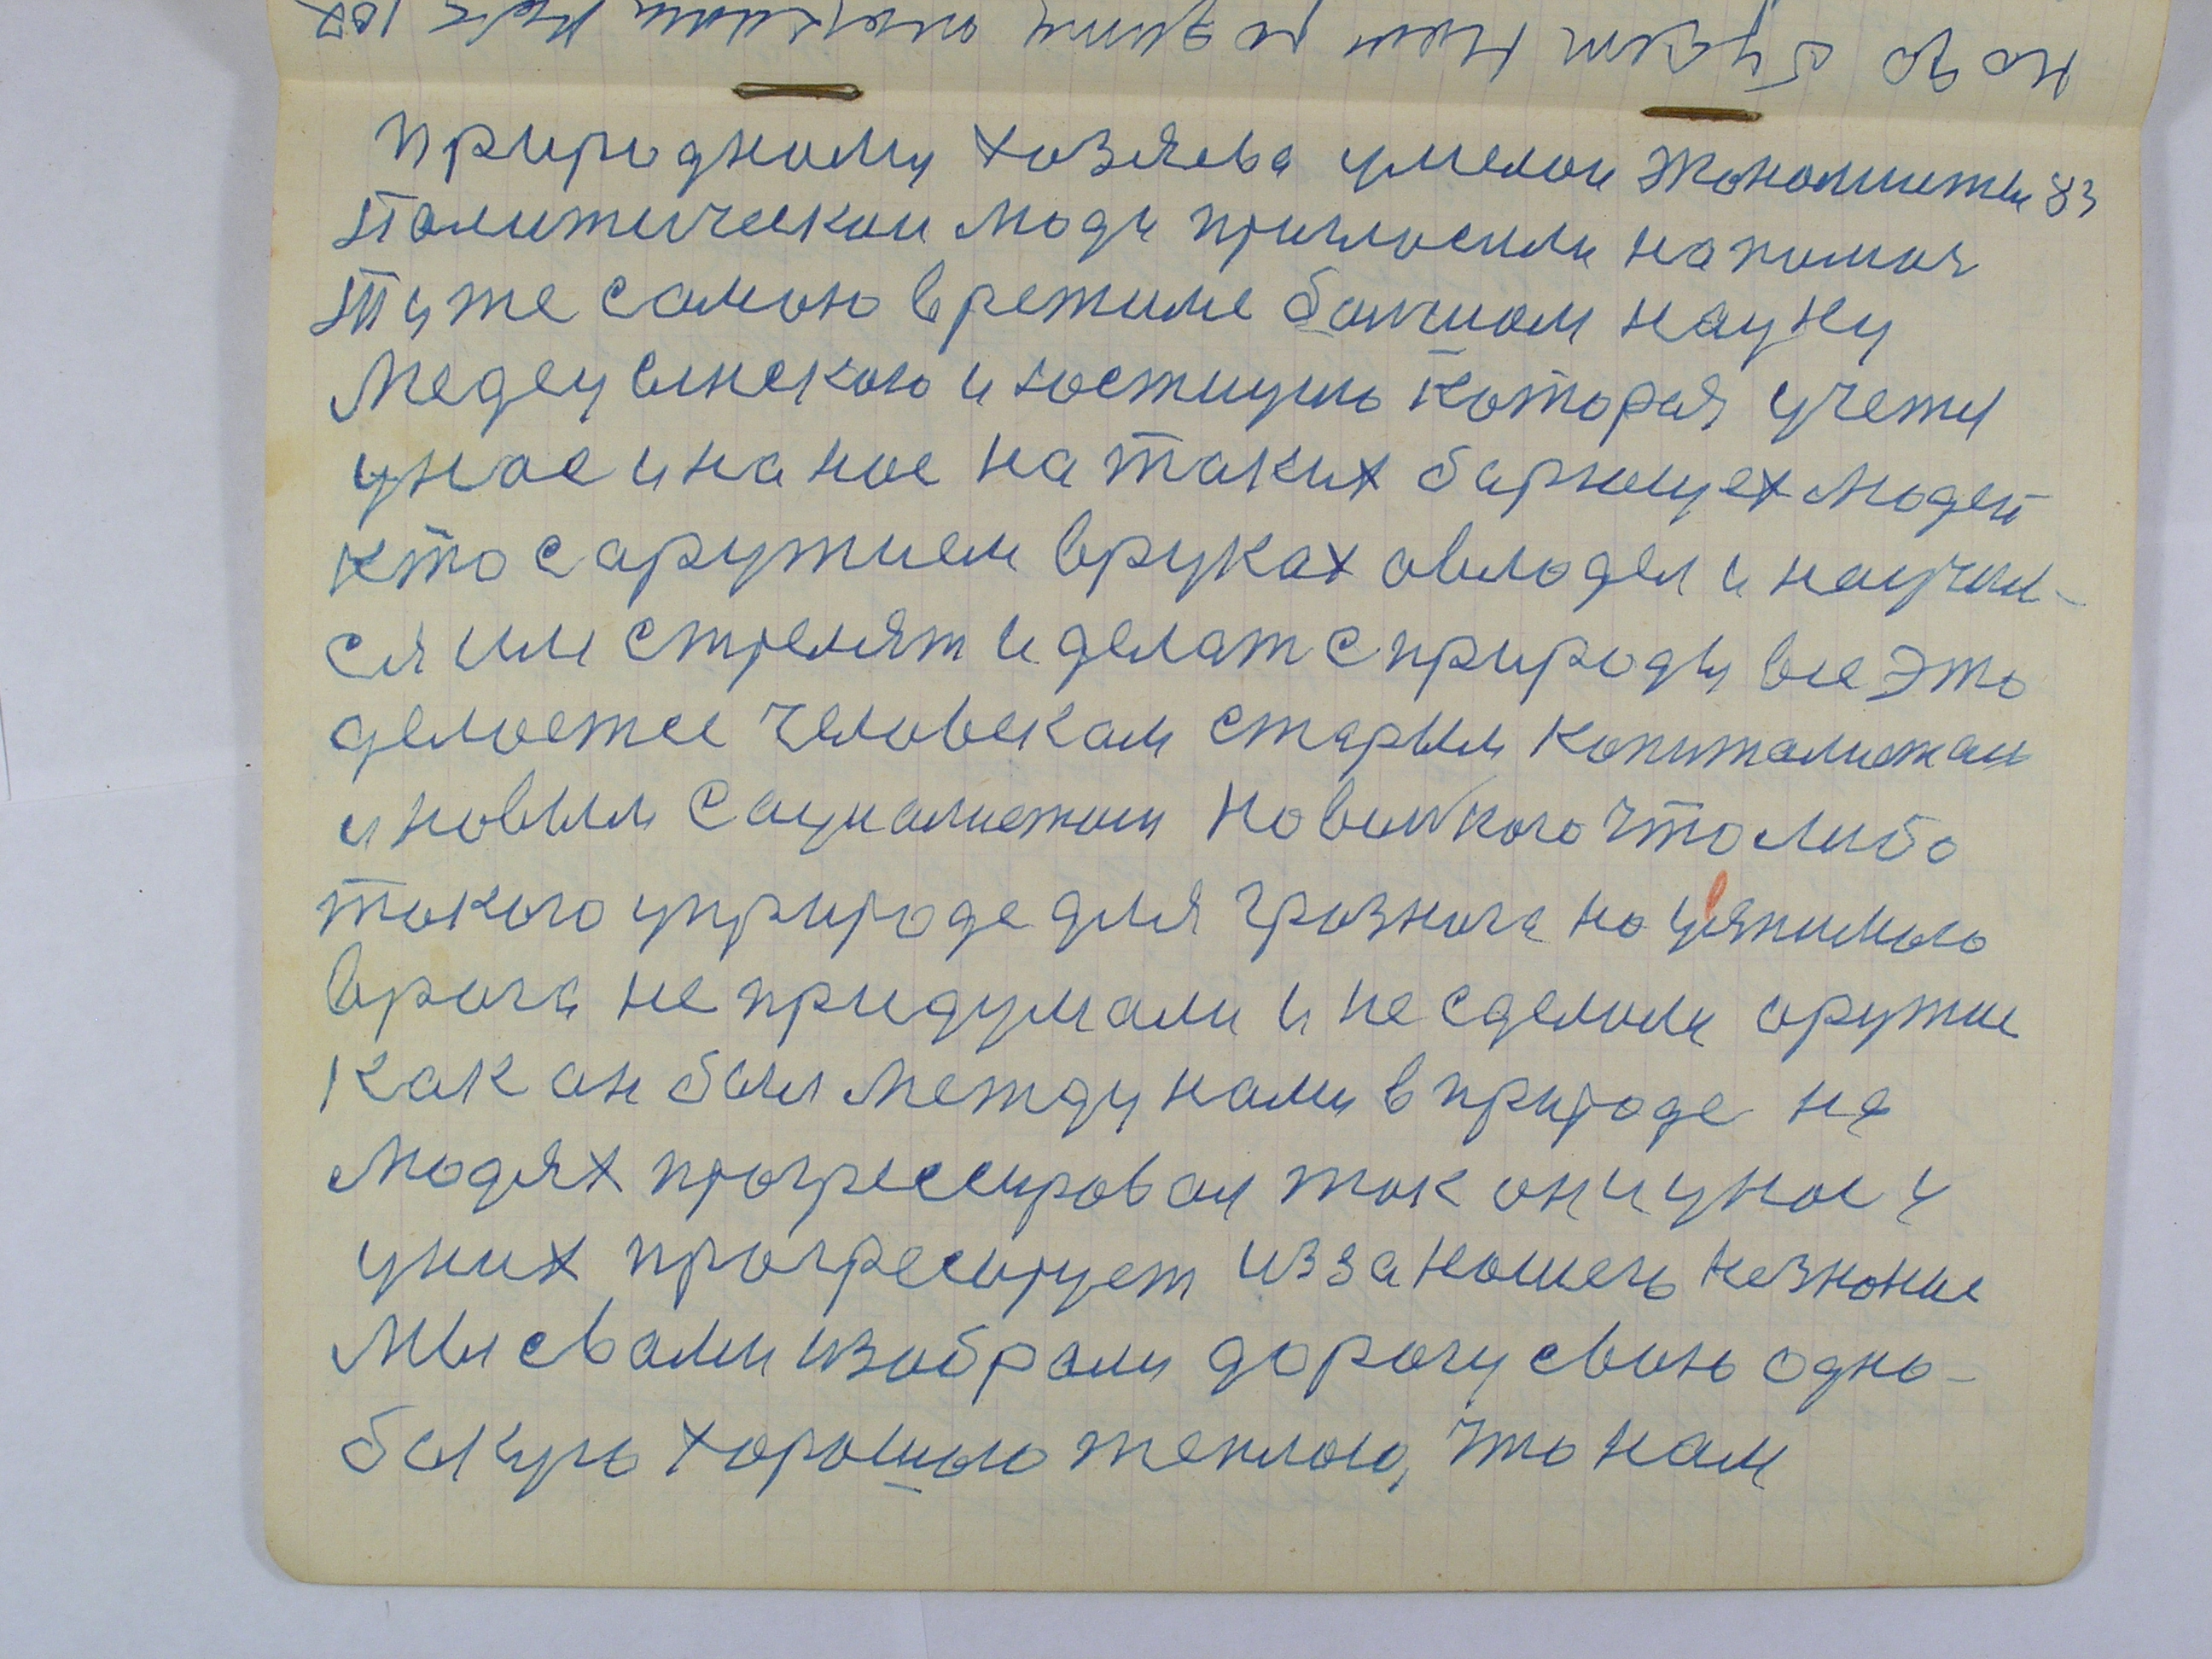 природному хозяева умелои экономисты 83
Политическии люди пригласили на помоч
Ту же самою в режиме болшом науку
Медецынскою и юстицию которая учеты
у нас и на нас на таких барющех людей
кто с аружием в руках овлодел и научил-
ся им стрелят и делат с природы все это
делоетсе человекам старым Копиталистам
и новым Социалистом Новым кого что либо
токого у природе для грозного
врага не придумали и не сделоли оружие
Как он был между нами в природе на
Людях прогрессировал так он и у нас и
у них прогресирует из за ношего незноние
Мы с вами изобрали дорогу свою одно-
бокую хорошою теплою, что нам